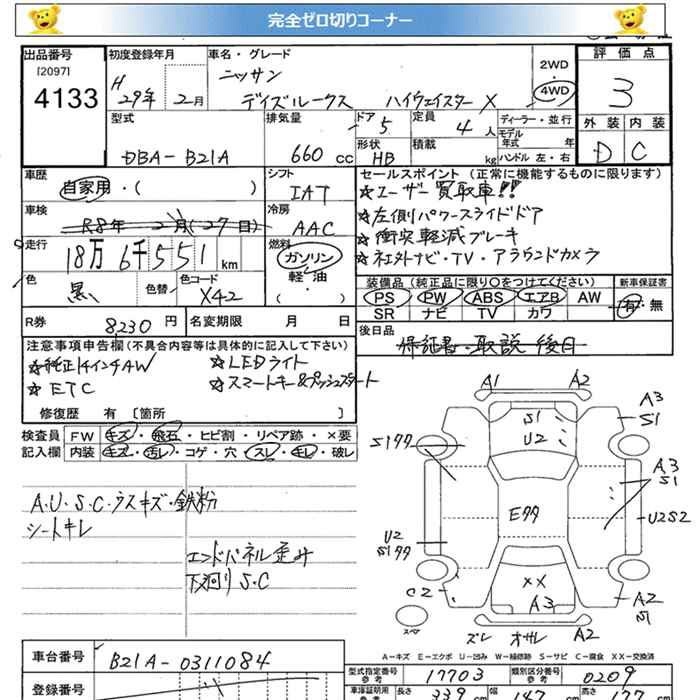 完全ゼロ切りコーナー
出品番号
[2097]
4133
初度登録年月
H
29年 2月
車名・グレード
ニッサン
デイズルークス ハイウェイスター X
2WD
・
4WD
評 価 点
3
外 装 内 装
D C
型式
DBA-B21A
排気量
660 cc
ドア 5
形状
HB
定員 4 人
積載 kg
ディーラー・並行
モデル
年式 年
ハンドル 左・右
車歴
自家用・( )
シフト
IAT
車検
R8年 2月(27日)
冷房
AAC
走行
18万6千551km
燃料
ガソリン
軽 油
( )
色
黒
色替
色コード
X42
R券 8230 円
名変期限 月 日
セールスポイント (正常に機能するものに限ります)
☆ユーザー買取車!!
☆左側パワースライドドア
☆衝突軽減ブレーキ
☆社外ナビ・TV・アラウンドカメラ
装備品 (純正品に限り○をつけてください)
新車保証書
PS PW ABS エアB AW
SR ナビ TV カワ
有・無
後日品
保証書・取説 後日
注意事項申告欄(不具合内容等は具体的に記入して下さい)
☆純正14インチAW ☆LEDライト
☆ETC ☆スマートキー&プッシュスタート
修復歴 有 [箇所 ]
検査員
記入欄
FW キズ・飛石・ヒビ割・リペア跡・×要
内装 キズ・汚レ・コゲ・穴・スレ・キレ・破レ
A・U・S・C・ラスキズ・鉄粉
シートキレ
エンドパネル歪み
下廻りS.C
A1 A2
A3
S1
S1
U2
S1ワワ
A3
S1
Eワワ
U2S2
U2
S1ワワ
C2
××
A3
A2
スペア
ズレ オサレ A2
A-キズ E-エクボ U-凹み W-補修跡 S-サビ C-腐食 XX-交換済
車台番号 B21A-0311084
登録番号
型式指定番号
参考
17703
類別区分番号
参考
0209
車庫証明用
参考
長さ 339 cm 幅 147 cm 高さ 177 cm